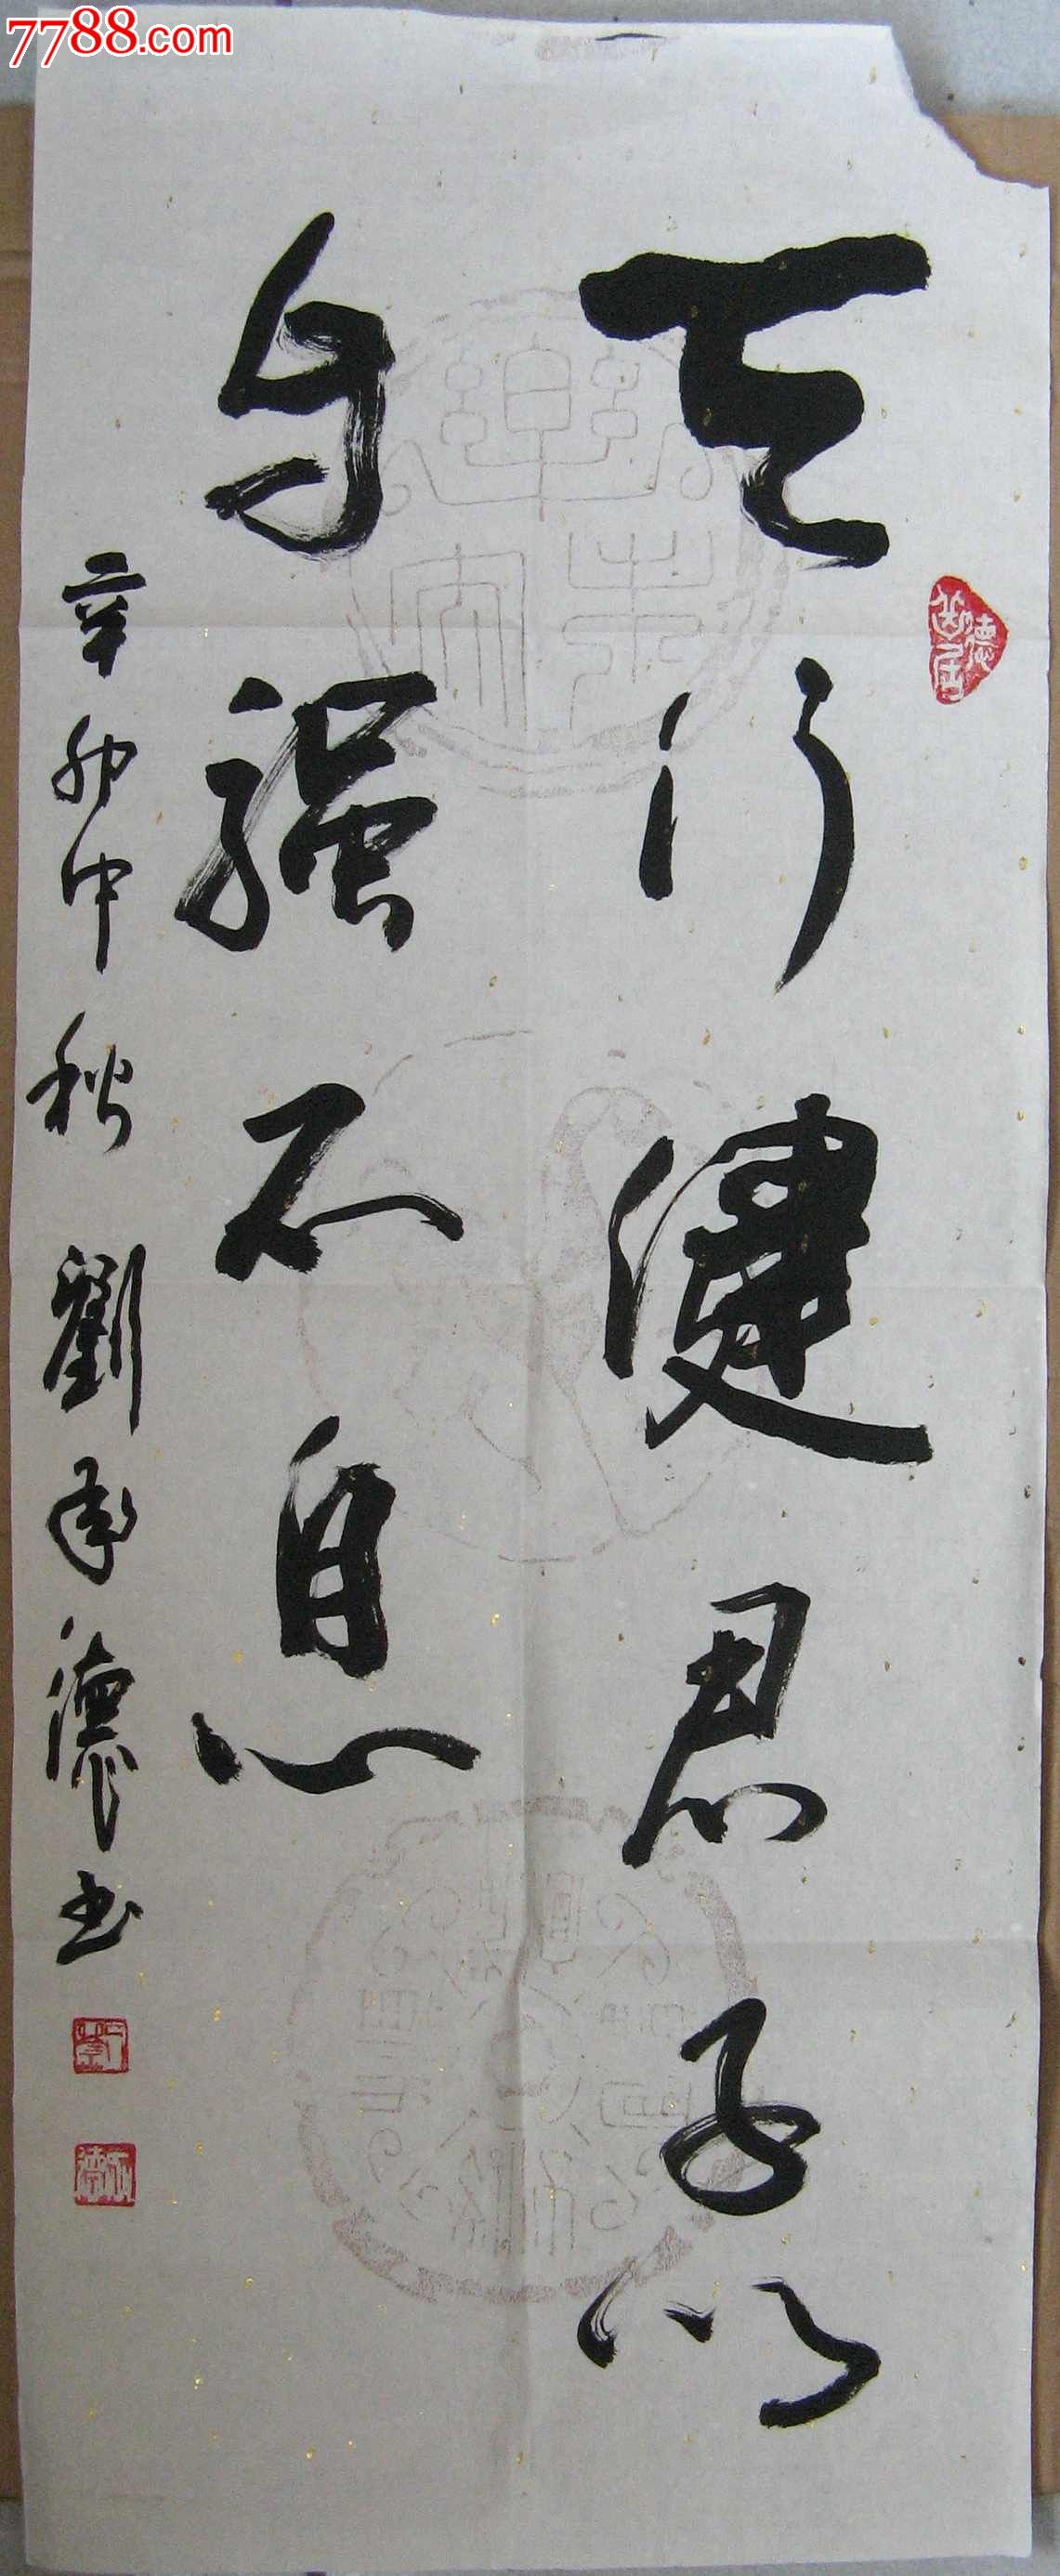 7788.com
天行健君子以
自强不息
辛卯中秋 劉承德书